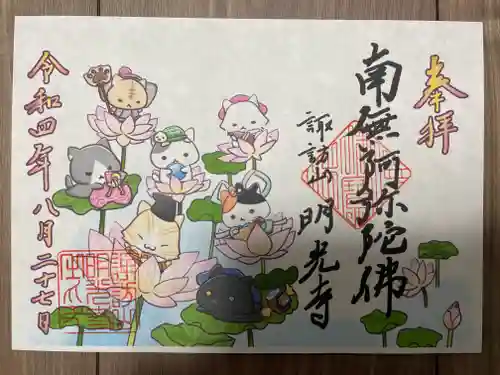 奉拝
南無阿弥陀佛
諏訪山 明光寺
令和四年八月二十七日